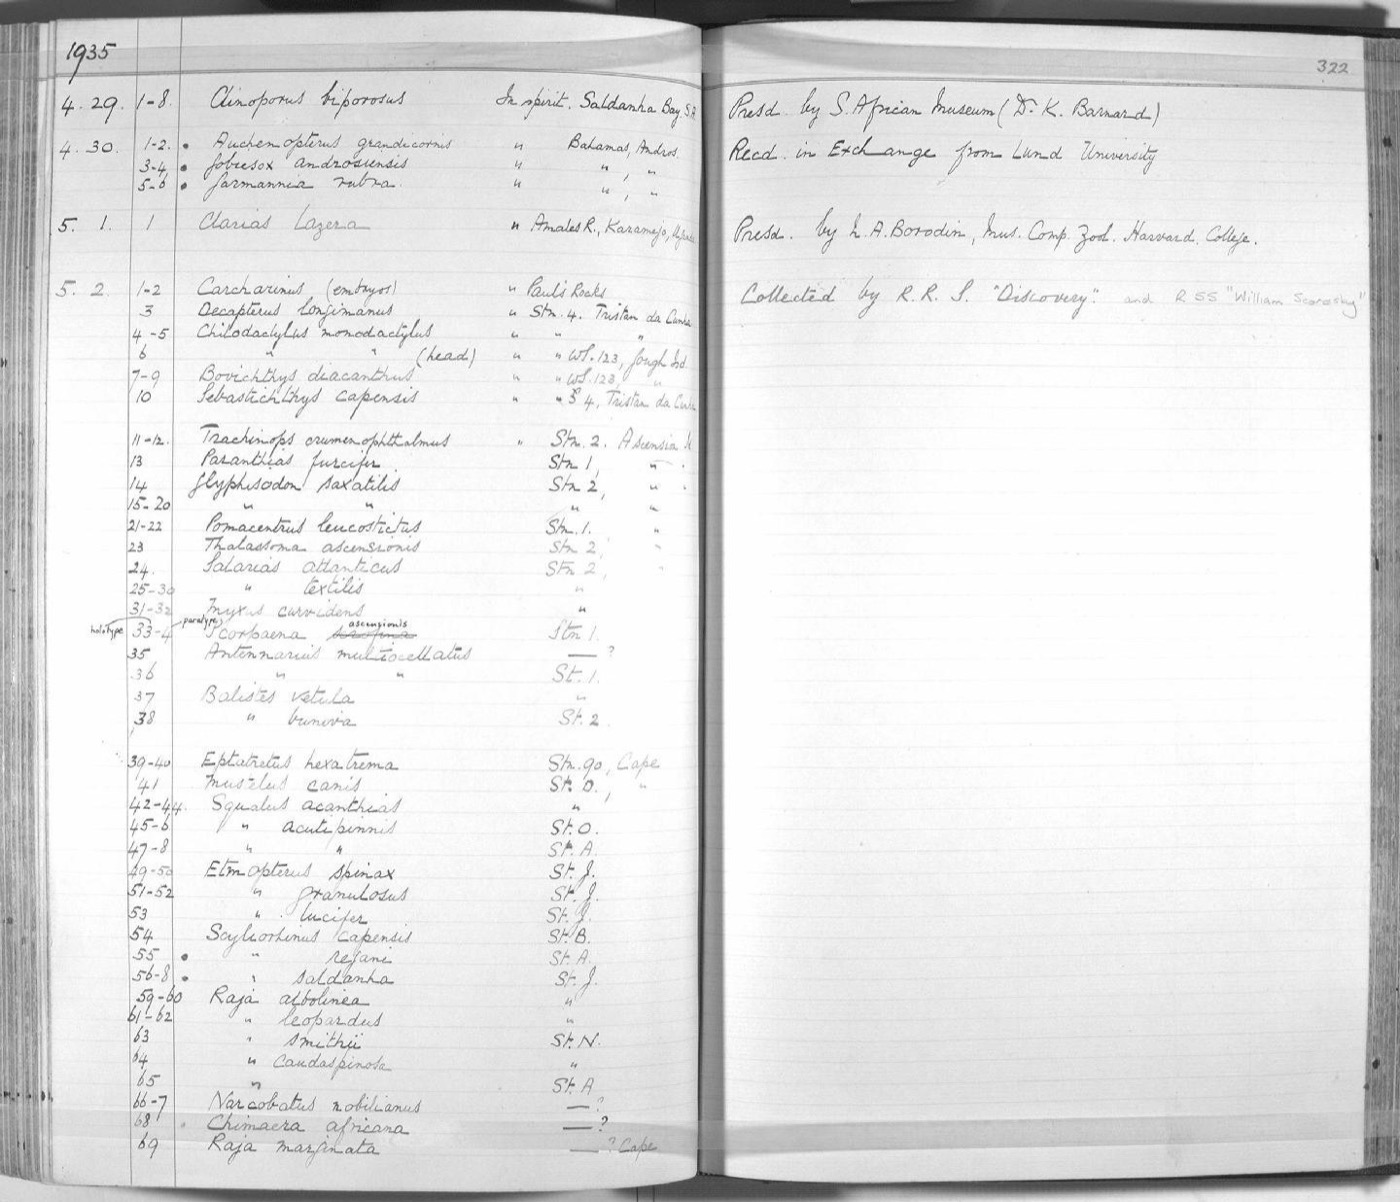 1935
322
4. 29. 1-8. Clinoporus biporosus In spirit. Saldanha Bay. S.A. Presd. by S. African Museum (Dr. K. Barnard)
4. 30. 1-2. • Auchenopterus grandicornis " Bahamas, Andros. Recd. in Exchange from Lund University
3-4 • Gobiesox androsiensis " " , "
5-6 • Garmannia rubra. " " , "
5. 1. 1 Clarias Lazera " Amales R., Karamojo, Presd. by N. A. Borodin, Mus. Comp. Zool. Harvard College.
5. 2. 1-2 Carcharinus (embryos) " Paul's Rocks Collected by R. R. S. "Discovery". and RSS "William Scoresby"
3 Decapterus longimanus " Stn. 4. Tristan da Cunha
4-5 Chilodactylus monodactylus " " "
6 " " (head) " " WS. 123, Gough Isd.
7-9 Bovichthys diacanthus " " WS. 123 "
10 Sebastichthys capensis " " S 4, Tristan da Cunha
11-12. Trachinops crumenophthalmus " Stn. 2. Ascensia
13 Paranthias furcifer. Stn 1, "
14 Glyphisodon saxatilis Stn 2, "
15-20 " " " "
21-22 Pomacentrus leucostictus Stn. 1. "
23 Thalassoma ascensionis Stn 2, "
24. Salarias atlanticus Stn 2, "
25-30 " textilis "
31-32 Myxus curvidens "
holotype 33-4 paratype Scorpaena ascensionis Stn 1.
35 Antennarius multiocellatus — ?
36 " " St. 1.
37 Balistes vetula "
38 " buniva St. 2
39-40 Eptatretus hexatrema Stn. 90, Cape
41 Mustelus canis St. D. , "
42-44. Squalus acanthias "
45-6 " acutipinnis St. O.
47-8 " " St. A.
49-50 Etmopterus spinax St. J.
51-52 " granulosus St. J.
53 " lucifer St. J.
54 Scyliorhinus capensis St. B.
55 • " regani St. A.
56-8 • " saldanha St. J.
59-60 Raja albolinea "
61-62 " leopardus "
63 " smithii St. N.
64 " caudaspinosa "
65 " St. A
66-7 Narcobatus nobilianus — ?
68 Chimaera africana — ?
69 Raja marginata — ? Cape